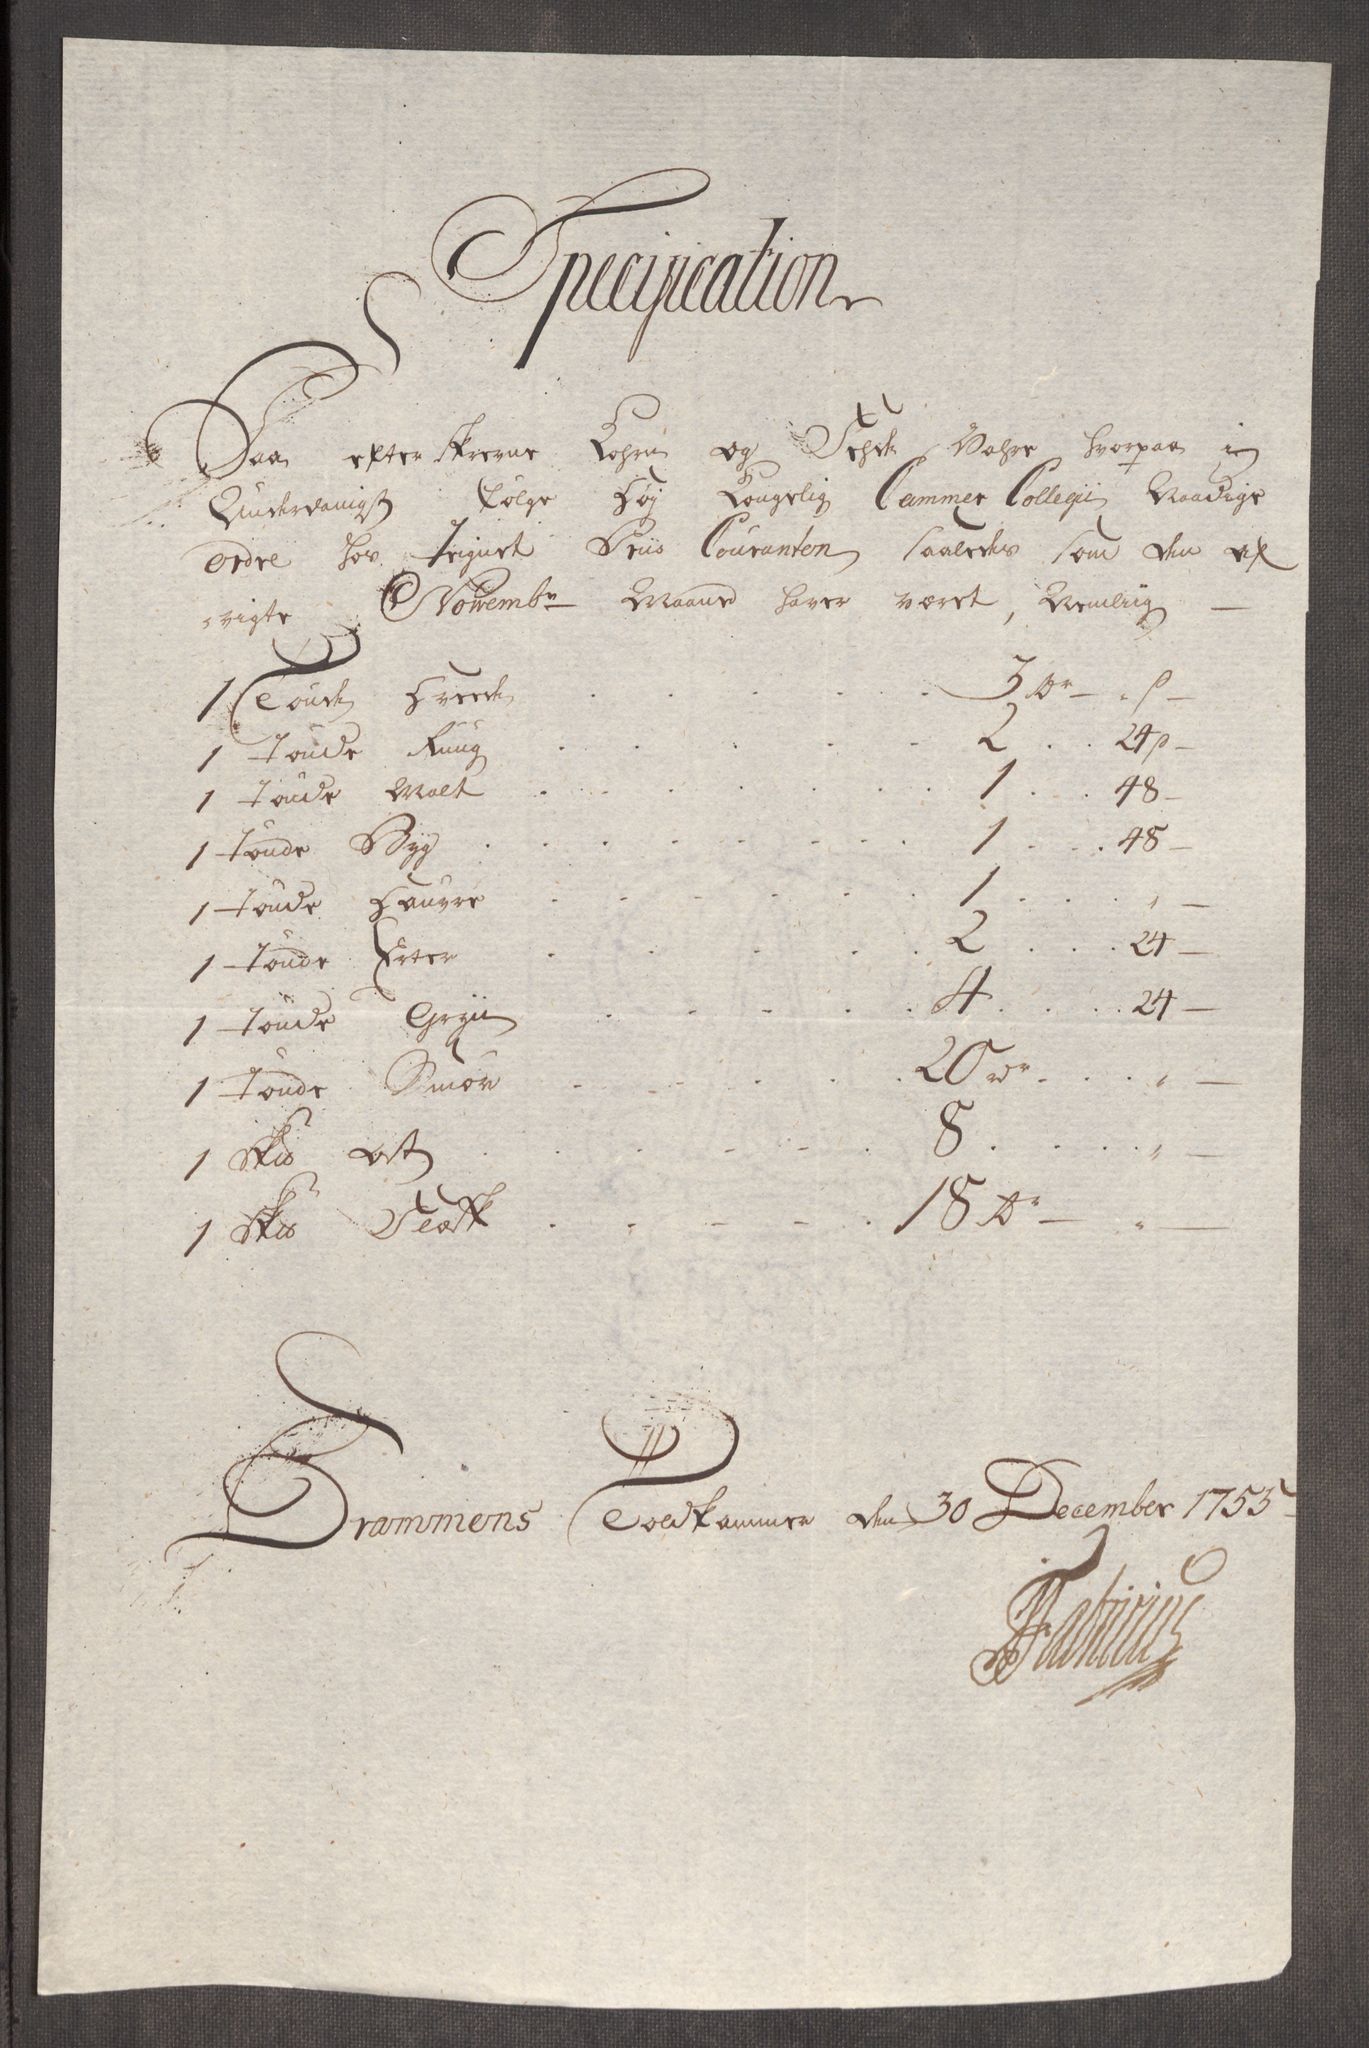 Specification
Paa efterskrevne Kohrn og Fehde Vahre hvorpaa i
Underdanigst følge Høy Kongelig Cammer Collegii Naadige
Ordre hos tegnet Priis Couranten saaledes som den af
vigte Novembr Maaned haver været, Nemlig —
1 Tønde Hvede . . . . . . 3 Rdr — „ ß —
1 Tønde Ruug . . . . . 2 . . 24 ß —
1 Tønde Malt . . . . . . . 1 . . . 48 —
1 Tønde Byg . . . . . . . . 1 . . . 48 —
1 Tønde Hauvre . . . . . . 1 . . . . „ —
1 Tønde Erter . . . . . 2 . . . . 24 —
1 Tønde Gryn . . . . . . 4 . . . . . 24 —
1 Tønde Smør . . . . . . 20 Rdr . . . . „ —
1 Sk℔ Ost . . . . . . 8 . . . . . „ —
1 Sk℔ Flesk . . . . . . 18 Rdr — „ —
Drammens Toldkammer den 30 December 1755
Fabricius